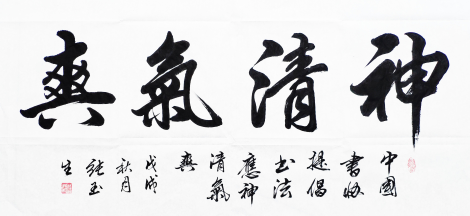 神清氣爽
中國
書協
提倡
書法
應神
清氣
爽
戊戌
秋月
玉
生